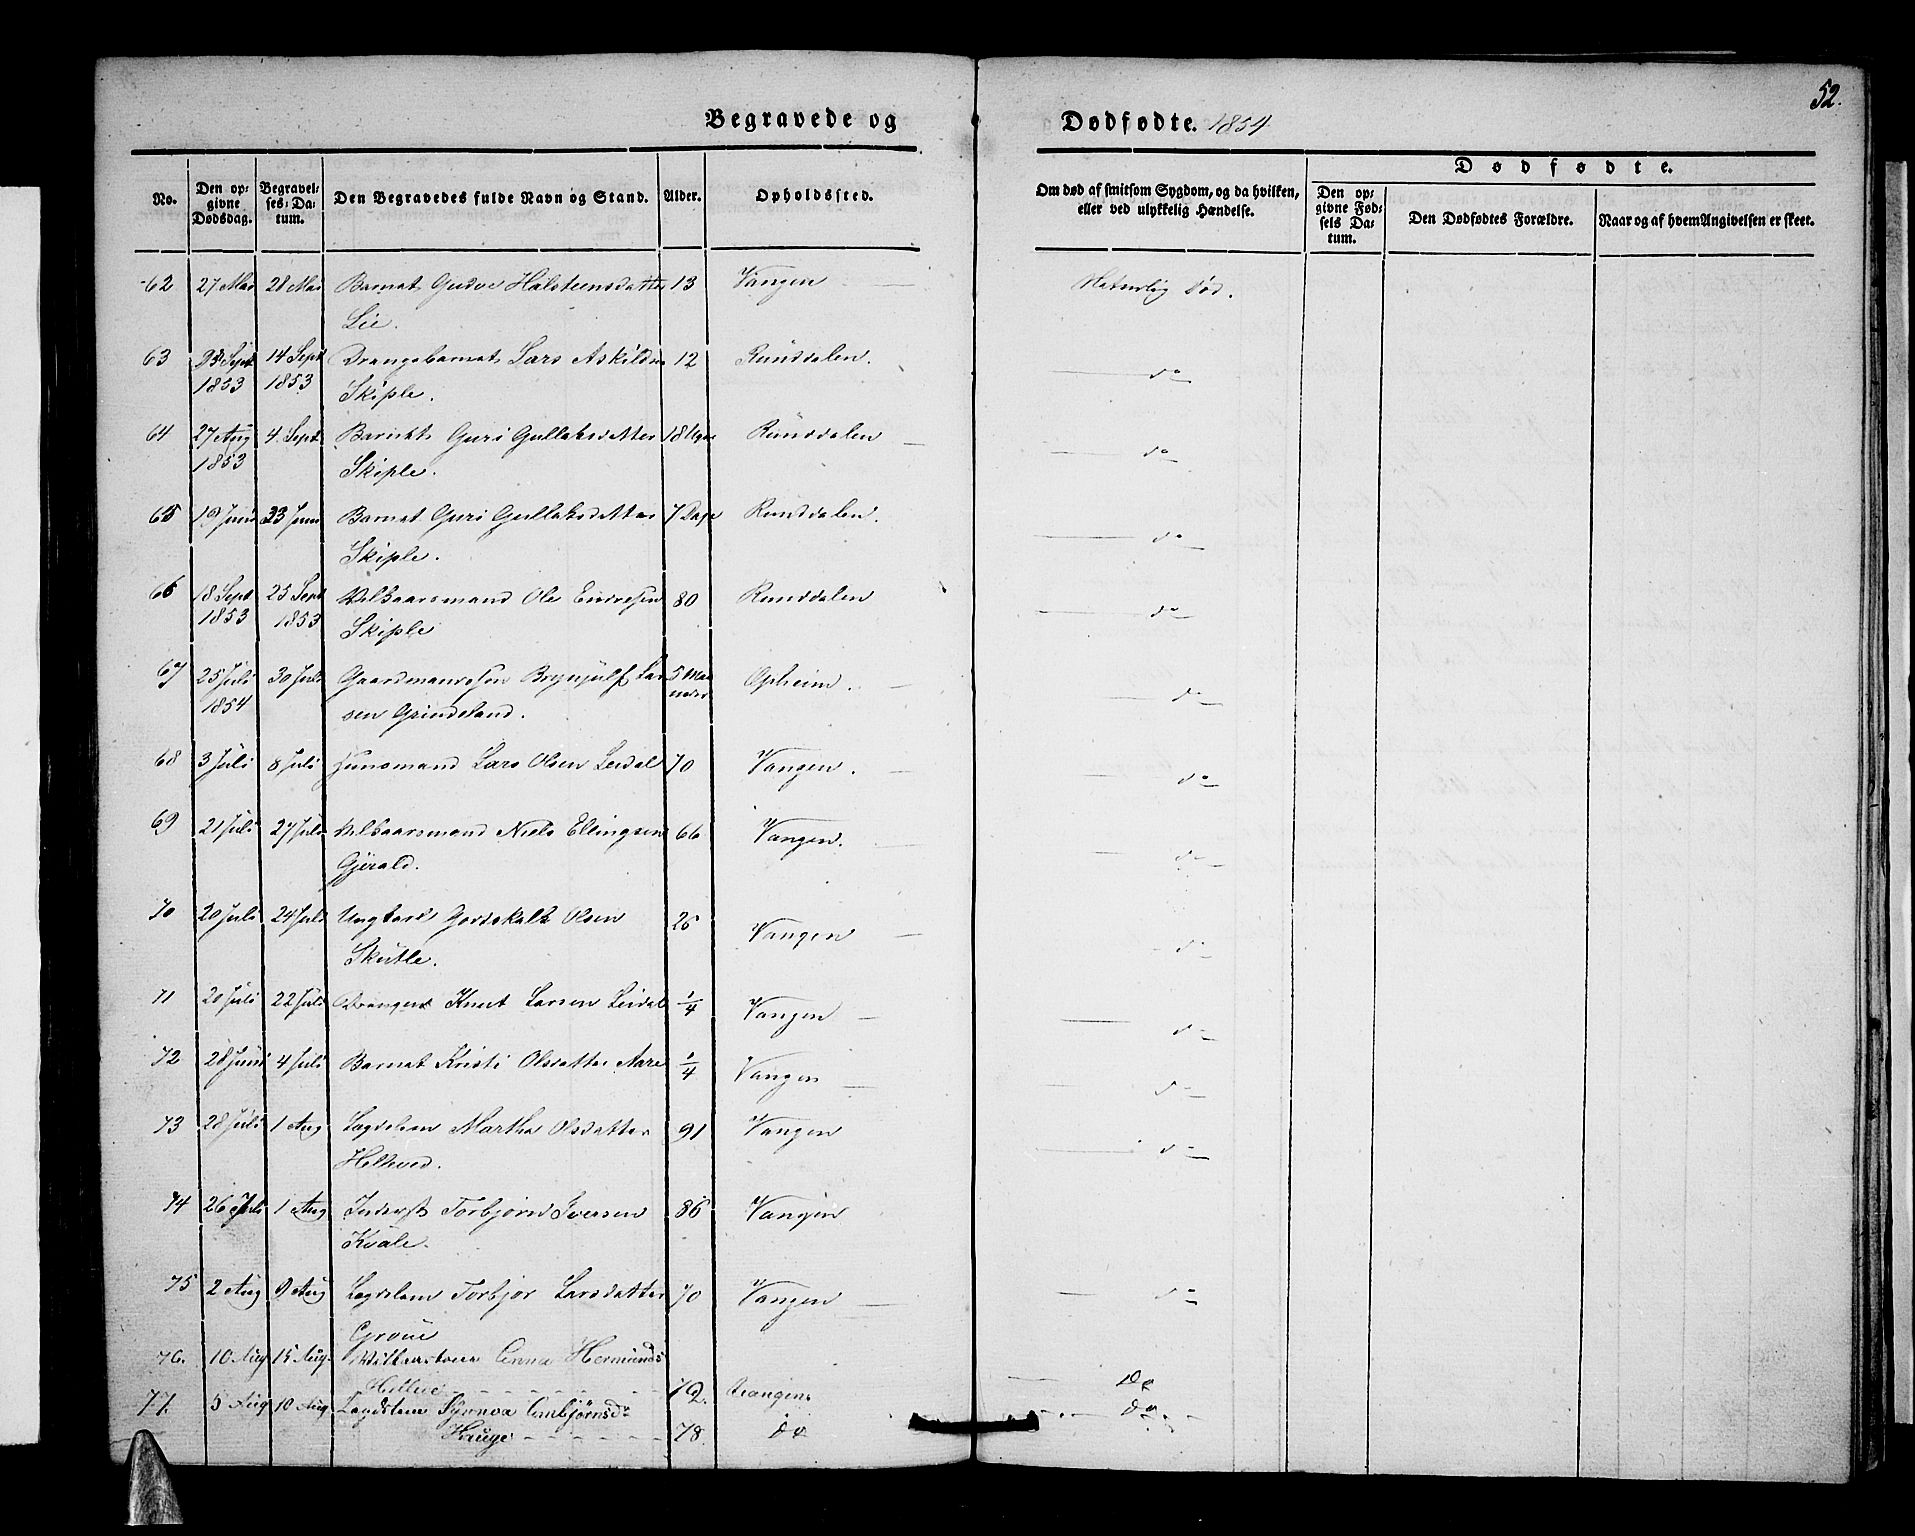 52.
Begravede og Dødfødte. 1854
No.
Den opgivne Dødsdag.
Begravelses-Datum.
Den Begravedes fulde Navn og Stand.
Alder.
Opholdssted.
Om død af smitsom Sygdom, og da hvilken, eller ved ulykkelig Hændelse.
Dødfødte.
Den opgivne Fødsels Datum.
Den Dødfødtes Forældre.
Naar og af hvem Angivelsen er skeet.
62 27 Mai 28 Mai Barnet Gudve Halsteensdatter 13 Vangen Naturlig Død.
Lie.
63 Sept 14 Sept Drengebarnet Lars Askildsen 12 Runddalen. do
1853 1853 Skiple.
64 27 Aug 4. Sept Guri Gullaksdatter 18 Uger Runddalen do
1853 Skiple.
65 19 Juni 23 Juni Barnet Guri Gullaksdatter 7 Dage Runddalen. do
Skiple.
66 18 Sept 25 Sept Vilkaarsmand Ole Endresen 80 Runddalen do
1853 1853 Skiple
67 25 Juli 30 Juli Gaardmandssøn Brynjulf Lar 5 Maa Opheim. do
1854 sen Grindeland. neder
68 3 Juli 8 Juli Huusmand Lars Olsen Leidal 70 Vangen. do
69 21 Juli 27 Juli Vilkaarsmand Niels Ellingsen 66 Vangen. do
Gjerald.
70 20 Juli 24 Juli Ungkarl Godskalk Olsen 26 Vangen do
Skutle.
71 20 Juli 22 Juli Drengen Knut Larsen Leidal 1/4 Vangen do
72 28 Juni 4 Juli Barnet Kristi Olsdatter 1/4 Vangen do
73 28 Juli 1 Aug Lægdslem Martha Olsdatter 91 Vangen do
74 26 Juli 1 Aug Inderst Torbjørn Iversen 86 Vangen
Kvale.
75 2 Aug 9 Aug Lægdslem Torbjør Larsdatter 70 Vangen do
Grove
76. 10 Aug 15 Aug. Anna Hermunds
72. Vangen Do
77. 5 Aug 10 Aug. Lægdslem Synneva Do
Hauge 78. do